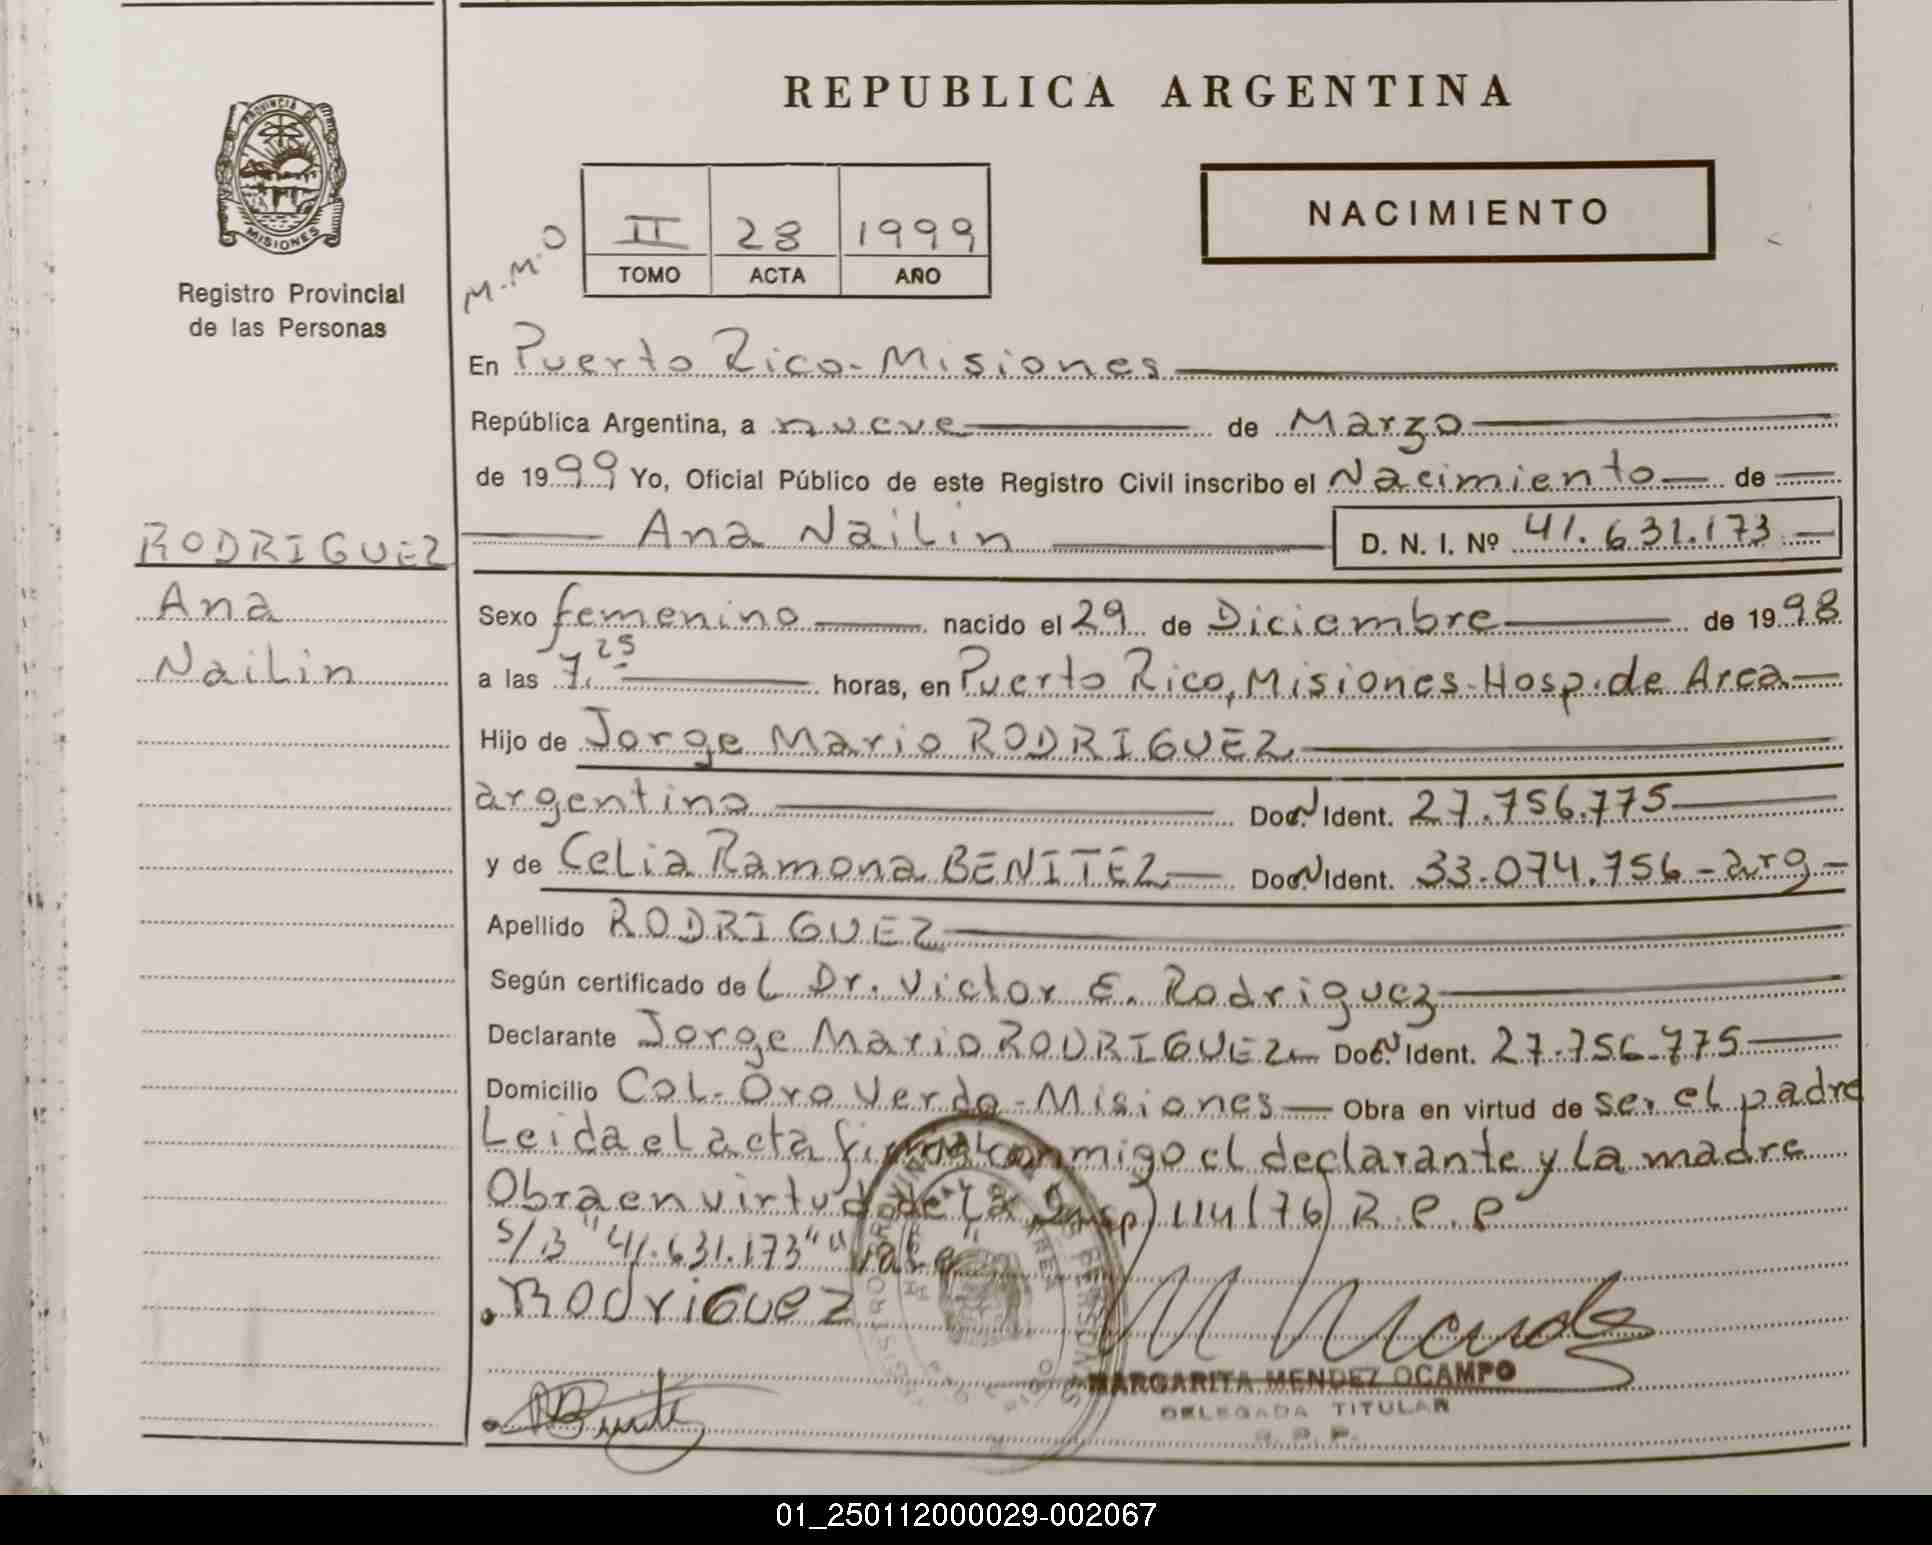 REPUBLICA ARGENTINA
PROVINCIA DE MISIONES
Registro Provincial
de las Personas
M.M.O
II 28 1999
TOMO ACTA AÑO
NACIMIENTO
En Puerto Rico - Misiones
República Argentina, a nueve de Marzo
de 1999 Yo, Oficial Público de este Registro Civil inscribo el Nacimiento de
RODRIGUEZ
Ana
Nailin
Ana Nailin D. N. I. Nº 41.631.173
Sexo femenino nacido el 29 de Diciembre de 1998
a las 7.25 horas, en Puerto Rico, Misiones-Hosp. de Area
Hijo de Jorge Mario RODRIGUEZ
argentino Doc. N Ident. 27.756.775
y de Celia Ramona BENITEZ Doc. N Ident. 33.074.756 - arg -
Apellido RODRIGUEZ
Según certificado del Dr. Victor E. Rodriguez
Declarante Jorge Mario RODRIGUEZ Doc. N Ident. 27.756.775
Domicilio Col. Oro Verde - Misiones Obra en virtud de ser el padre
Leida el acta firma conmigo el declarante y la madre
Obra en virtud de la Disp) 114/76) R.P.P
s/B "41.631.173" "vale"
Rodriguez
MARGARITA MENDEZ OCAMPO
DELEGADA TITULAR
R. P. P.
01_250112000029-002067